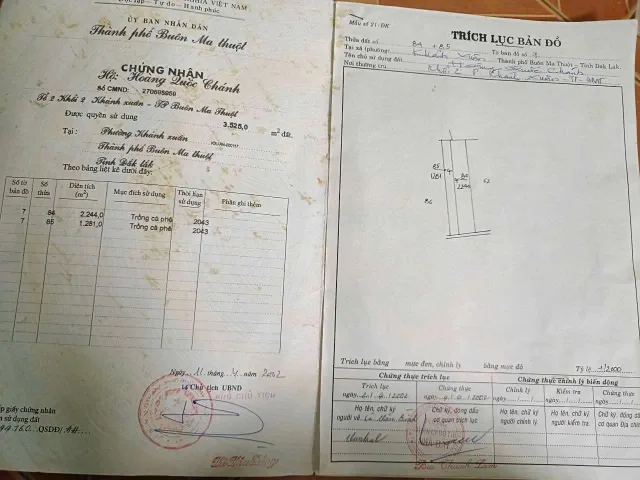 NGHĨA VIỆT NAM
Độc lập - Tự do - Hạnh phúc
ỦY BAN NHÂN DÂN
Thành phố Buôn Ma thuột
CHỨNG NHẬN
Hộ: Hoàng Quốc Chánh
Số CMND: 270695050
Tổ 2 Khối 2 Khánh xuân - TP Buôn Ma Thuột
Được quyền sử dụng 3.525,0 m² đất.
Tại: Phường Khánh xuân
Thành phố Buôn Ma thuột
Tỉnh Đắk lắk
Theo bảng liệt kê dưới đây:
Số tờ bản đồ Số thửa Diện tích (m²) Mục đích sử dụng Thời hạn sử dụng Phần ghi thêm
7 84 2.244,0 Trồng cà phê 2043
7 85 1.281,0 Trồng cà phê 2043
Ngày 11 tháng 4 năm 2002
Chủ tịch UBND
PHÓ CHỦ TỊCH
cấp giấy chứng nhận
sử dụng đất
QSDĐ/
Mẫu số 21/ĐK
TRÍCH LỤC BẢN ĐỒ
Thửa đất số: 84 + 85 Tờ bản đồ số
Tại xã (phường) Khánh Xuân Thành phố Buôn Ma Thuột - Tỉnh Dak Lak.
Tên chủ sử dụng đất: Hoàng Quốc Chánh
Nơi thường trú: Khối 2 P Khánh Xuân - TP BMT
85
1281
84
2244
63
86
Trích lục bằng mực đen, chỉnh lý bằng mực đỏ Tỷ lệ
Chứng thực trích lục Chứng thực chỉnh lý biến động
Trích lục Chứng thực Chỉnh lý Kiểm tra Chứng thực
ngày 2002 ngày 2002 ngày ngày ngày
Họ tên, chữ ký người vẽ Họ tên, chữ ký người chỉnh lý Họ tên, chữ ký người kiểm tra.
Chữ ký, đóng dấu cơ quan trích lục